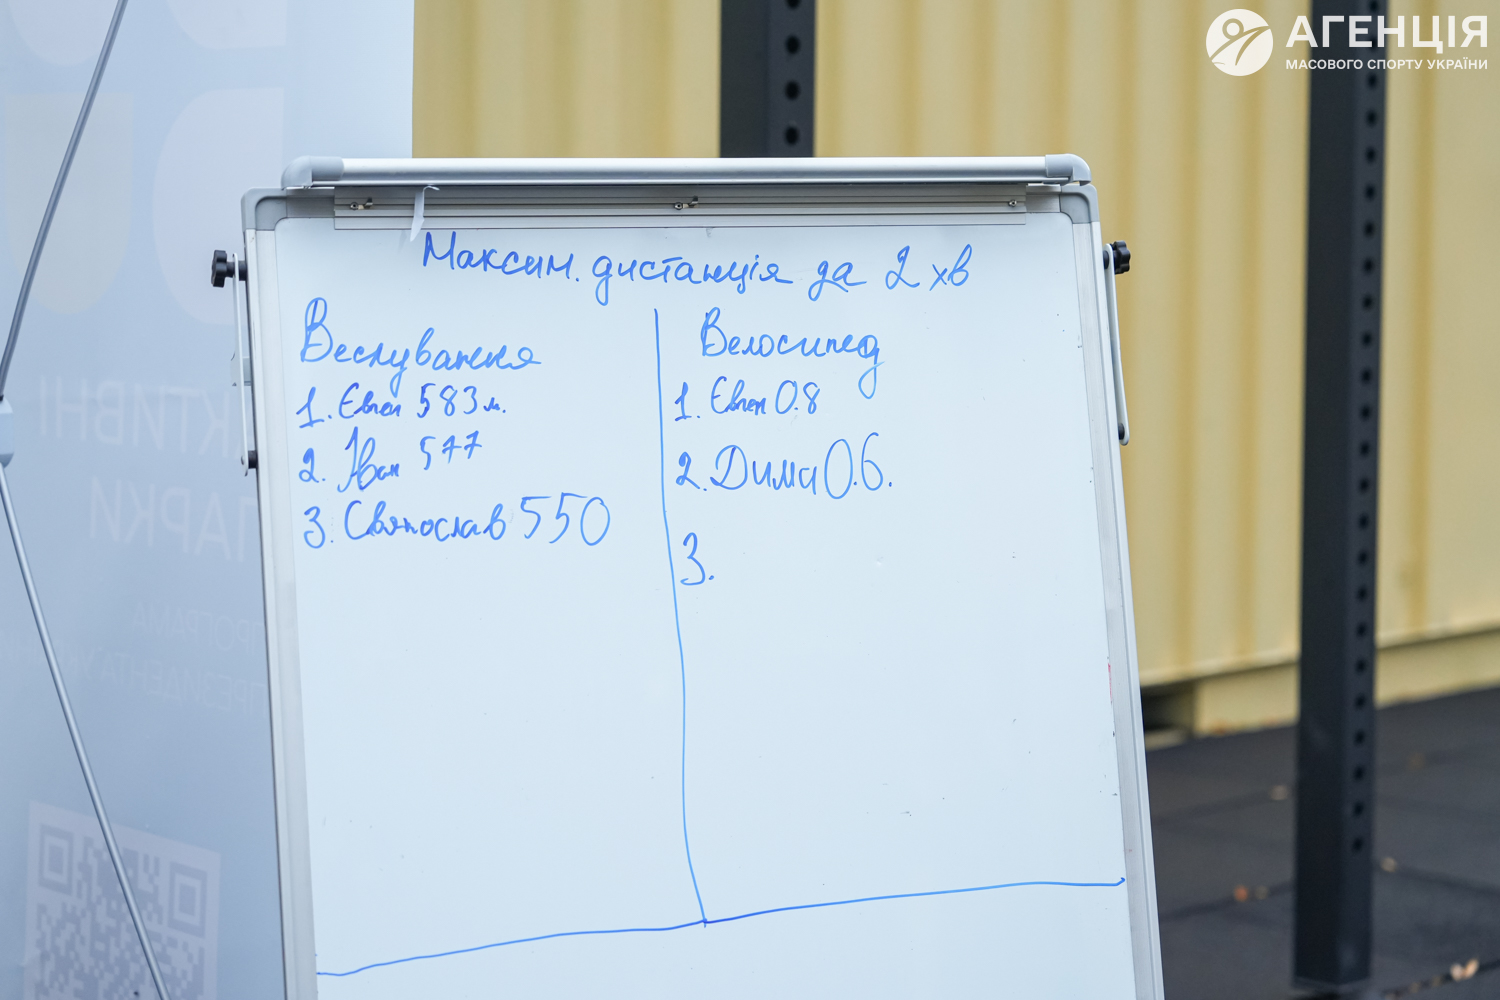 АГЕНЦІЯ
МАСОВОГО СПОРТУ УКРАЇНИ
Максим. дистанція за 2 хв
Веслування
1. Євген 583 м.
2. Іван 577
3. Святослав 550
Велосипед
1. Євген 0.8
2. Дима 0.6.
3.
АКТИВНІ
ПАРКИ
ПРОГРАМА
ПРЕЗИДЕНТА